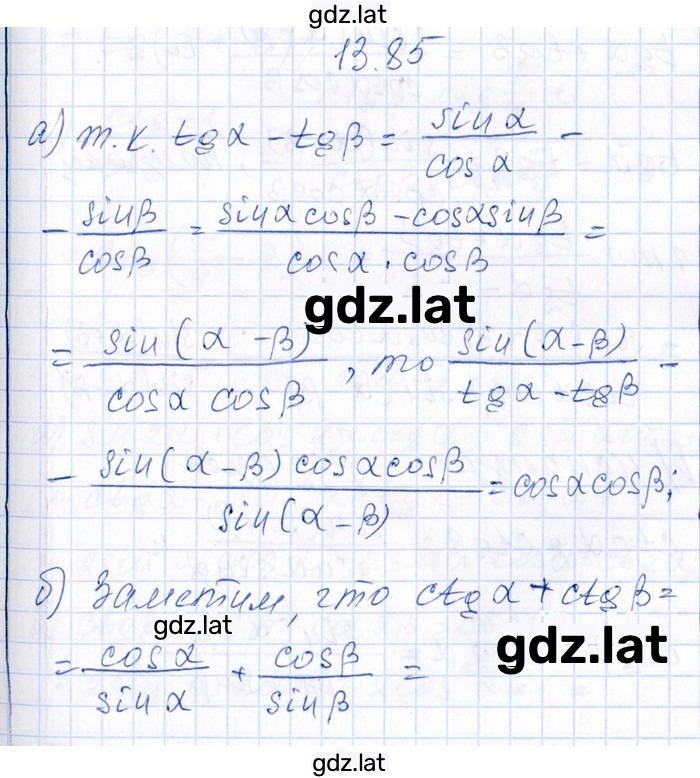 gdz.lat
13.85
а) т.к. tgα - tgβ = sinα/cosα -
- sinβ/cosβ = (sinα cosβ - cosα sinβ)/(cosα · cosβ) =
gdz.lat
= sin(α - β)/(cosα cosβ), то sin(α-β)/(tgα - tgβ) -
- sin(α-β) cosα cosβ/sin(α-β) = cosα cosβ;
б) Заметим, что ctgα + ctgβ =
gdz.lat
gdz.lat
= cosα/sinα + cosβ/sinβ =
gdz.lat